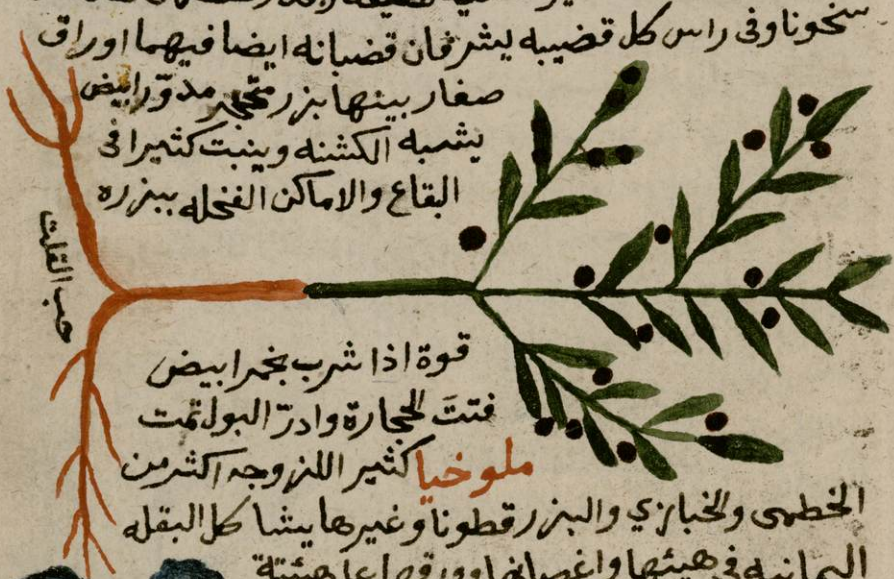 سخونا وفى راس كل قضيبه يشرفان قضبانه ايضا فيهما اوراق
صغار بينها بزر متحجر مدور ابيض
يشبه الكشنه وينبت كثيرا فى
البقاع والاماكن الفخله ببزره
حب القلت
قوة اذا شرب بخمر ابيض
فتت الحجارة وادر البول تمت
ملوخيا كثير اللزوجه اكثر من
الخطمى والخبازي والبزر قطونا وغيرها يشاكل البقله
اليمانيه فى هيئتها واغصانها وورقها على هيئة